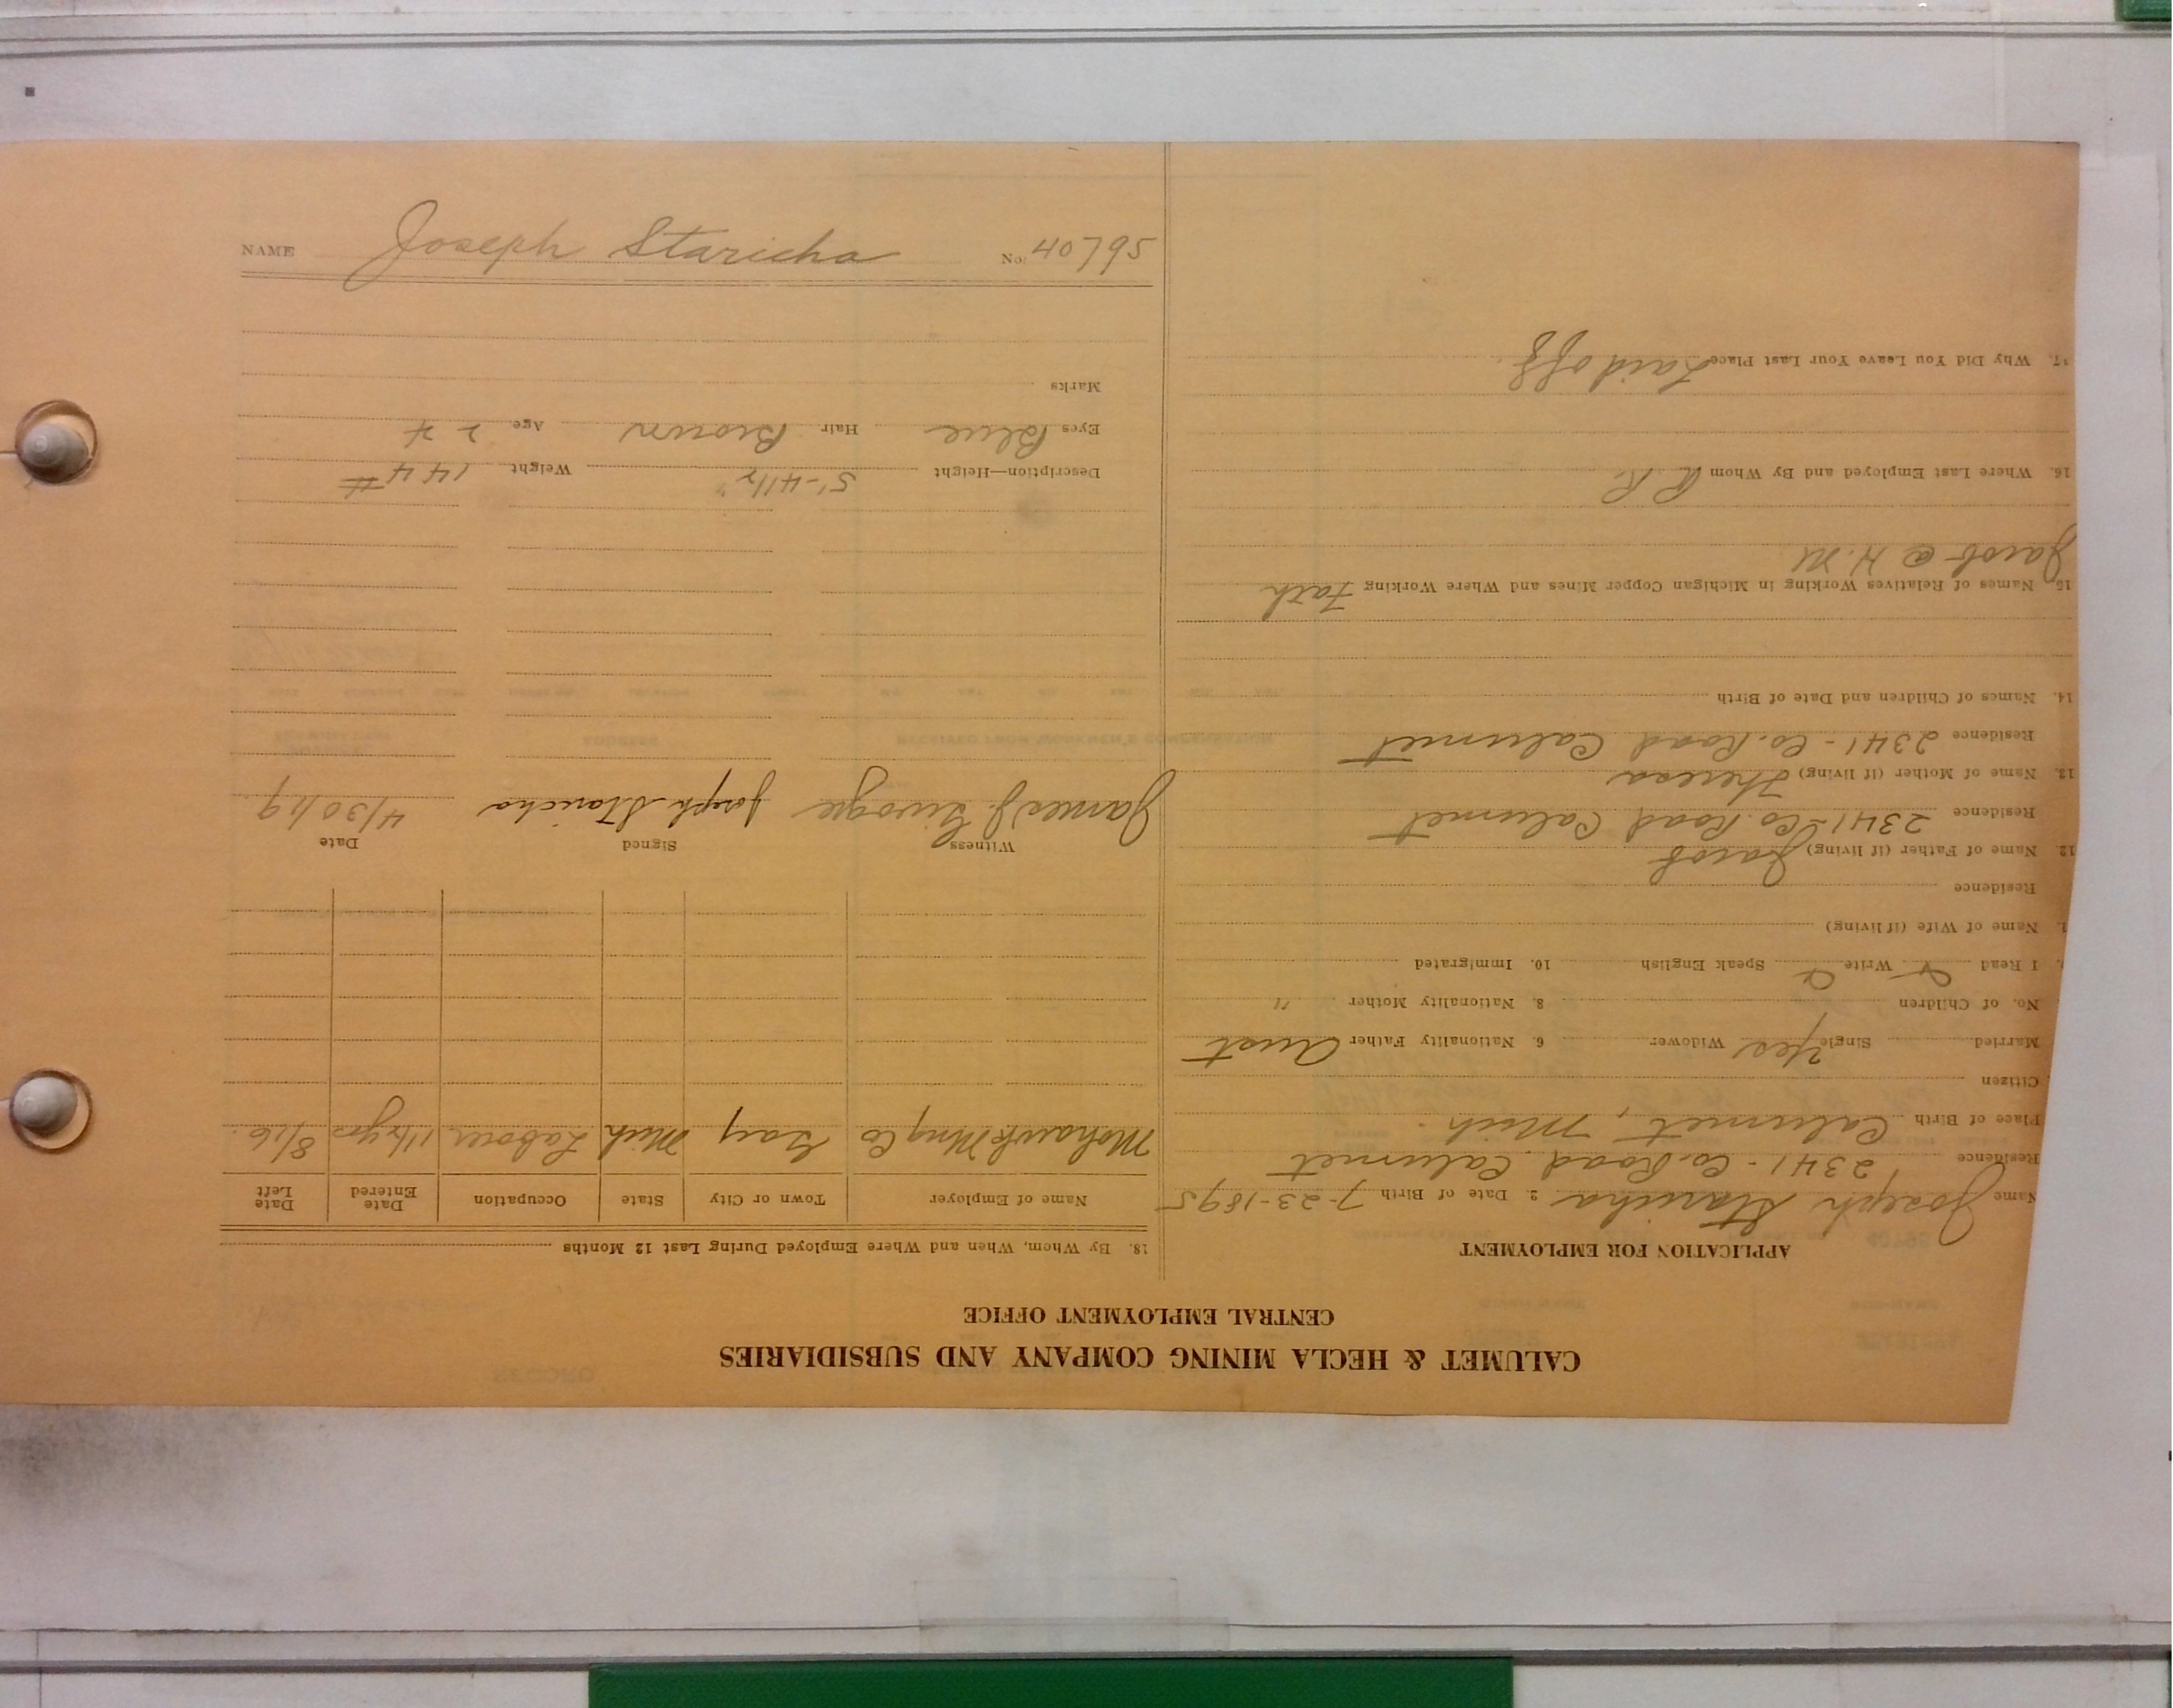 CALUMET & HECLA MINING COMPANY AND SUBSIDIARIES
CENTRAL EMPLOYMENT OFFICE
APPLICATION FOR EMPLOYMENT
Name Joseph Staricha 2. Date of Birth 7-23-1895
Residence 2341 - Co. Road Calumet
Place of Birth Calumet, Mich.
Citizen
Married Single Yes Widower 6. Nationality Father Aust
No. of Children 8. Nationality Mother "
I Read Write Speak English 10. Immigrated
Name of Wife (if living)
Residence
12. Name of Father (if living) Jacob
Residence 2341 - Co. Road Calumet
13. Name of Mother (if living) Theresa
Residence 2341 - Co. Road Calumet
14. Names of Children and Date of Birth
15. Names of Relatives Working in Michigan Copper Mines and Where Working Fath
Jacob @ H.M
16. Where Last Employed and By Whom R.R.
17. Why Did You Leave Your Last Place Laid off.
18. By Whom, When and Where Employed During Last 12 Months
Name of Employer Town or City State Occupation Date Entered Date Left
Mohawk Mng Co Gay Mich Laborer 1 1/2 yrs 8/16.
Witness Signed Date
James J. Joseph Staricha 4/30/19.
Description—Height 5'-4 1/2" Weight 144 #
Eyes Blue Hair Brown Age 24
Marks
NAME Joseph Staricha No. 40795